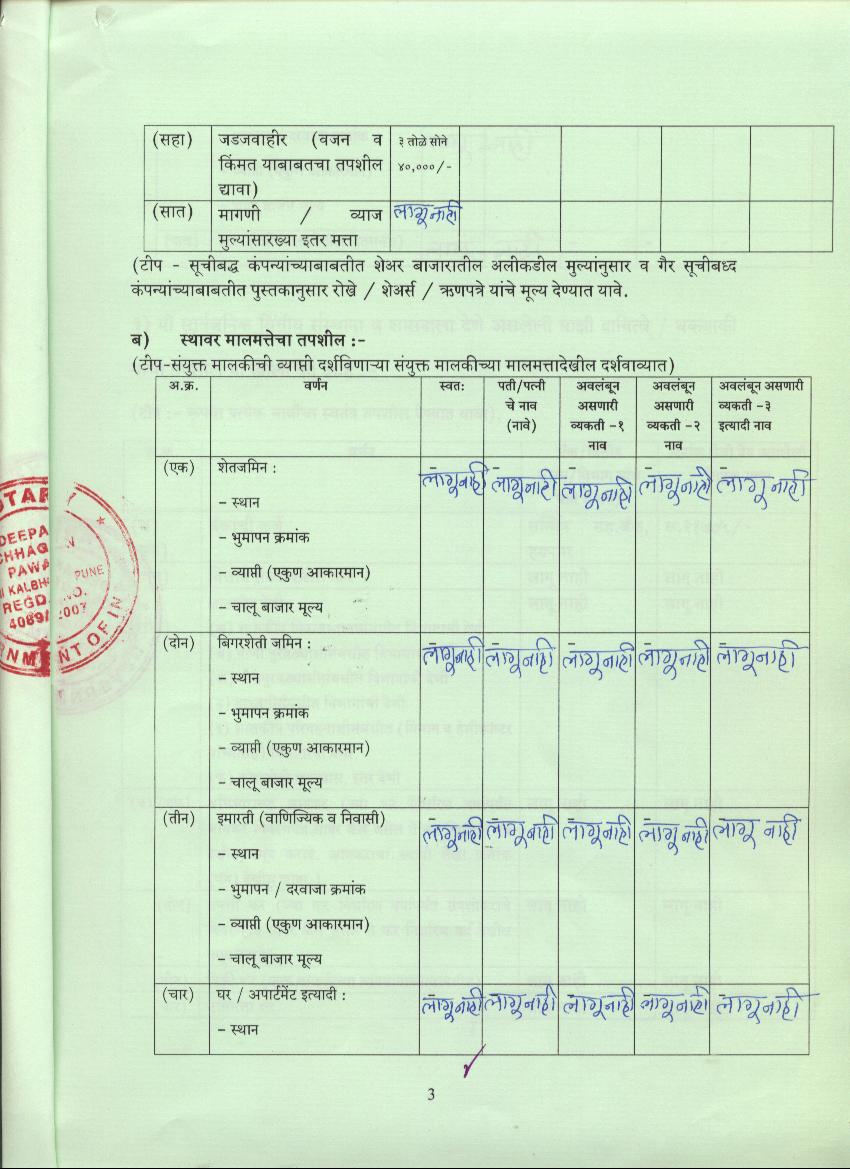 (सहा) जडजवाहीर (वजन व ३ तोळे सोने
किंमत याबाबतचा तपशील ४०,०००/-
द्यावा)
(सात) मागणी / व्याज लागू नाही
मुल्यांसारख्या इतर मत्ता
(टीप - सूचीबद्ध कंपन्यांच्याबाबतीत शेअर बाजारातील अलीकडील मुल्यांनुसार व गैर सूचीबध्द
कंपन्यांच्याबाबतीत पुस्तकानुसार रोखे / शेअर्स / ऋणपत्रे यांचे मूल्य देण्यात यावे.
ब) स्थावर मालमत्तेचा तपशील :-
(टीप-संयुक्त मालकीची व्याप्ती दर्शविणाऱ्या संयुक्त मालकीच्या मालमत्तादेखील दर्शवाव्यात)
अ.क्र. वर्णन स्वत: पती/पत्नी अवलंबून अवलंबून अवलंबून असणारी
चे नाव असणारी असणारी व्यकती -३
(नावे) व्यकती -१ व्यकती -२ इत्यादी नाव
नाव नाव
(एक) शेतजमिन : लागू नाही लागू नाही लागू नाही लागू नाही लागू नाही
- स्थान
- भुमापन क्रमांक
- व्याप्ती (एकुण आकारमान)
- चालू बाजार मूल्य
(दोन) बिगरशेती जमिन : लागू नाही लागू नाही लागू नाही लागू नाही लागू नाही
- स्थान
- भुमापन क्रमांक
- व्याप्ती (एकुण आकारमान)
- चालू बाजार मूल्य
(तीन) इमारती (वाणिज्यिक व निवासी) लागू नाही लागू नाही लागू नाही लागू नाही लागू नाही
- स्थान
- भुमापन / दरवाजा क्रमांक
- व्याप्ती (एकुण आकारमान)
- चालू बाजार मूल्य
(चार) घर / अपार्टमेंट इत्यादी : लागू नाही लागू नाही लागू नाही लागू नाही लागू नाही
- स्थान
3
DEEPA
CHHAG
PAWA PUNE
KALBH
REGD. NO.
4069/2007